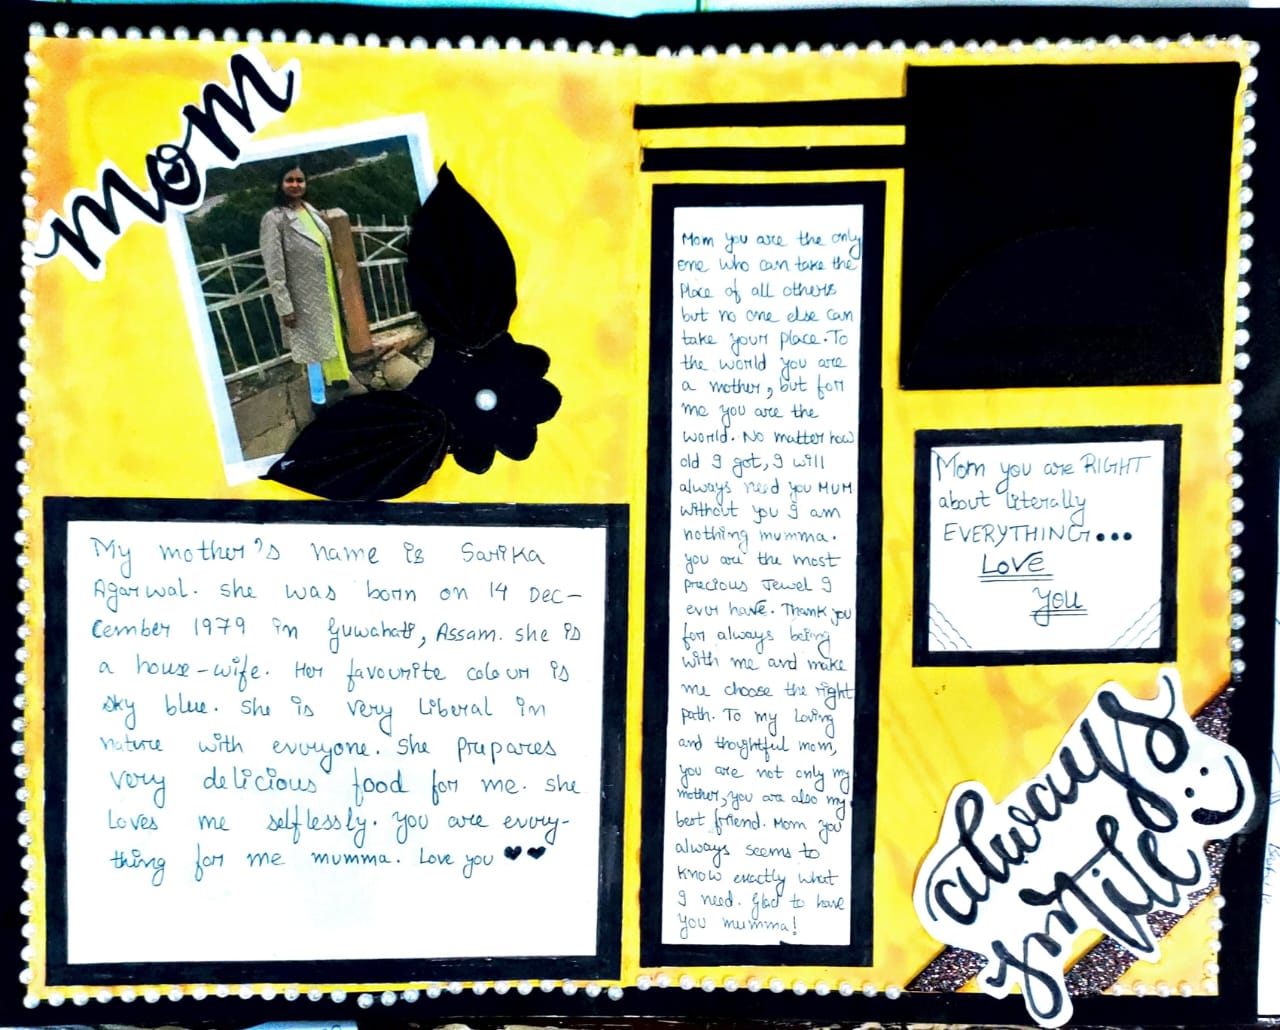 mom
My mother's name is Sarika
Agarwal. She was born on 14 Dec-
cember 1979 in Guwahati, Assam. She is
a house-wife. Her favourite colour is
sky blue. She is very liberal in
nature with everyone. She prepares
very delicious food for me. She
loves me selflessly. You are every-
thing for me mumma. Love you ♥♥
Mom you are the only
one who can take the
place of all others
but no one else can
take your place. To
the world you are
a mother, but for
me you are the
world. No matter how
old I got, I will
always need you MUM
without you I am
nothing mumma.
you are the most
precious Jewel I
ever have. Thank you
for always being
with me and make
me choose the right
path. To my loving
and thoughtful mom,
you are not only my
mother, you are also my
best friend. Mom you
always seems to
know exactly what
I need. Glad to have
you mumma!
Mom you are RIGHT
about literally
EVERYTHING...
LOVE
YOU
always
smile